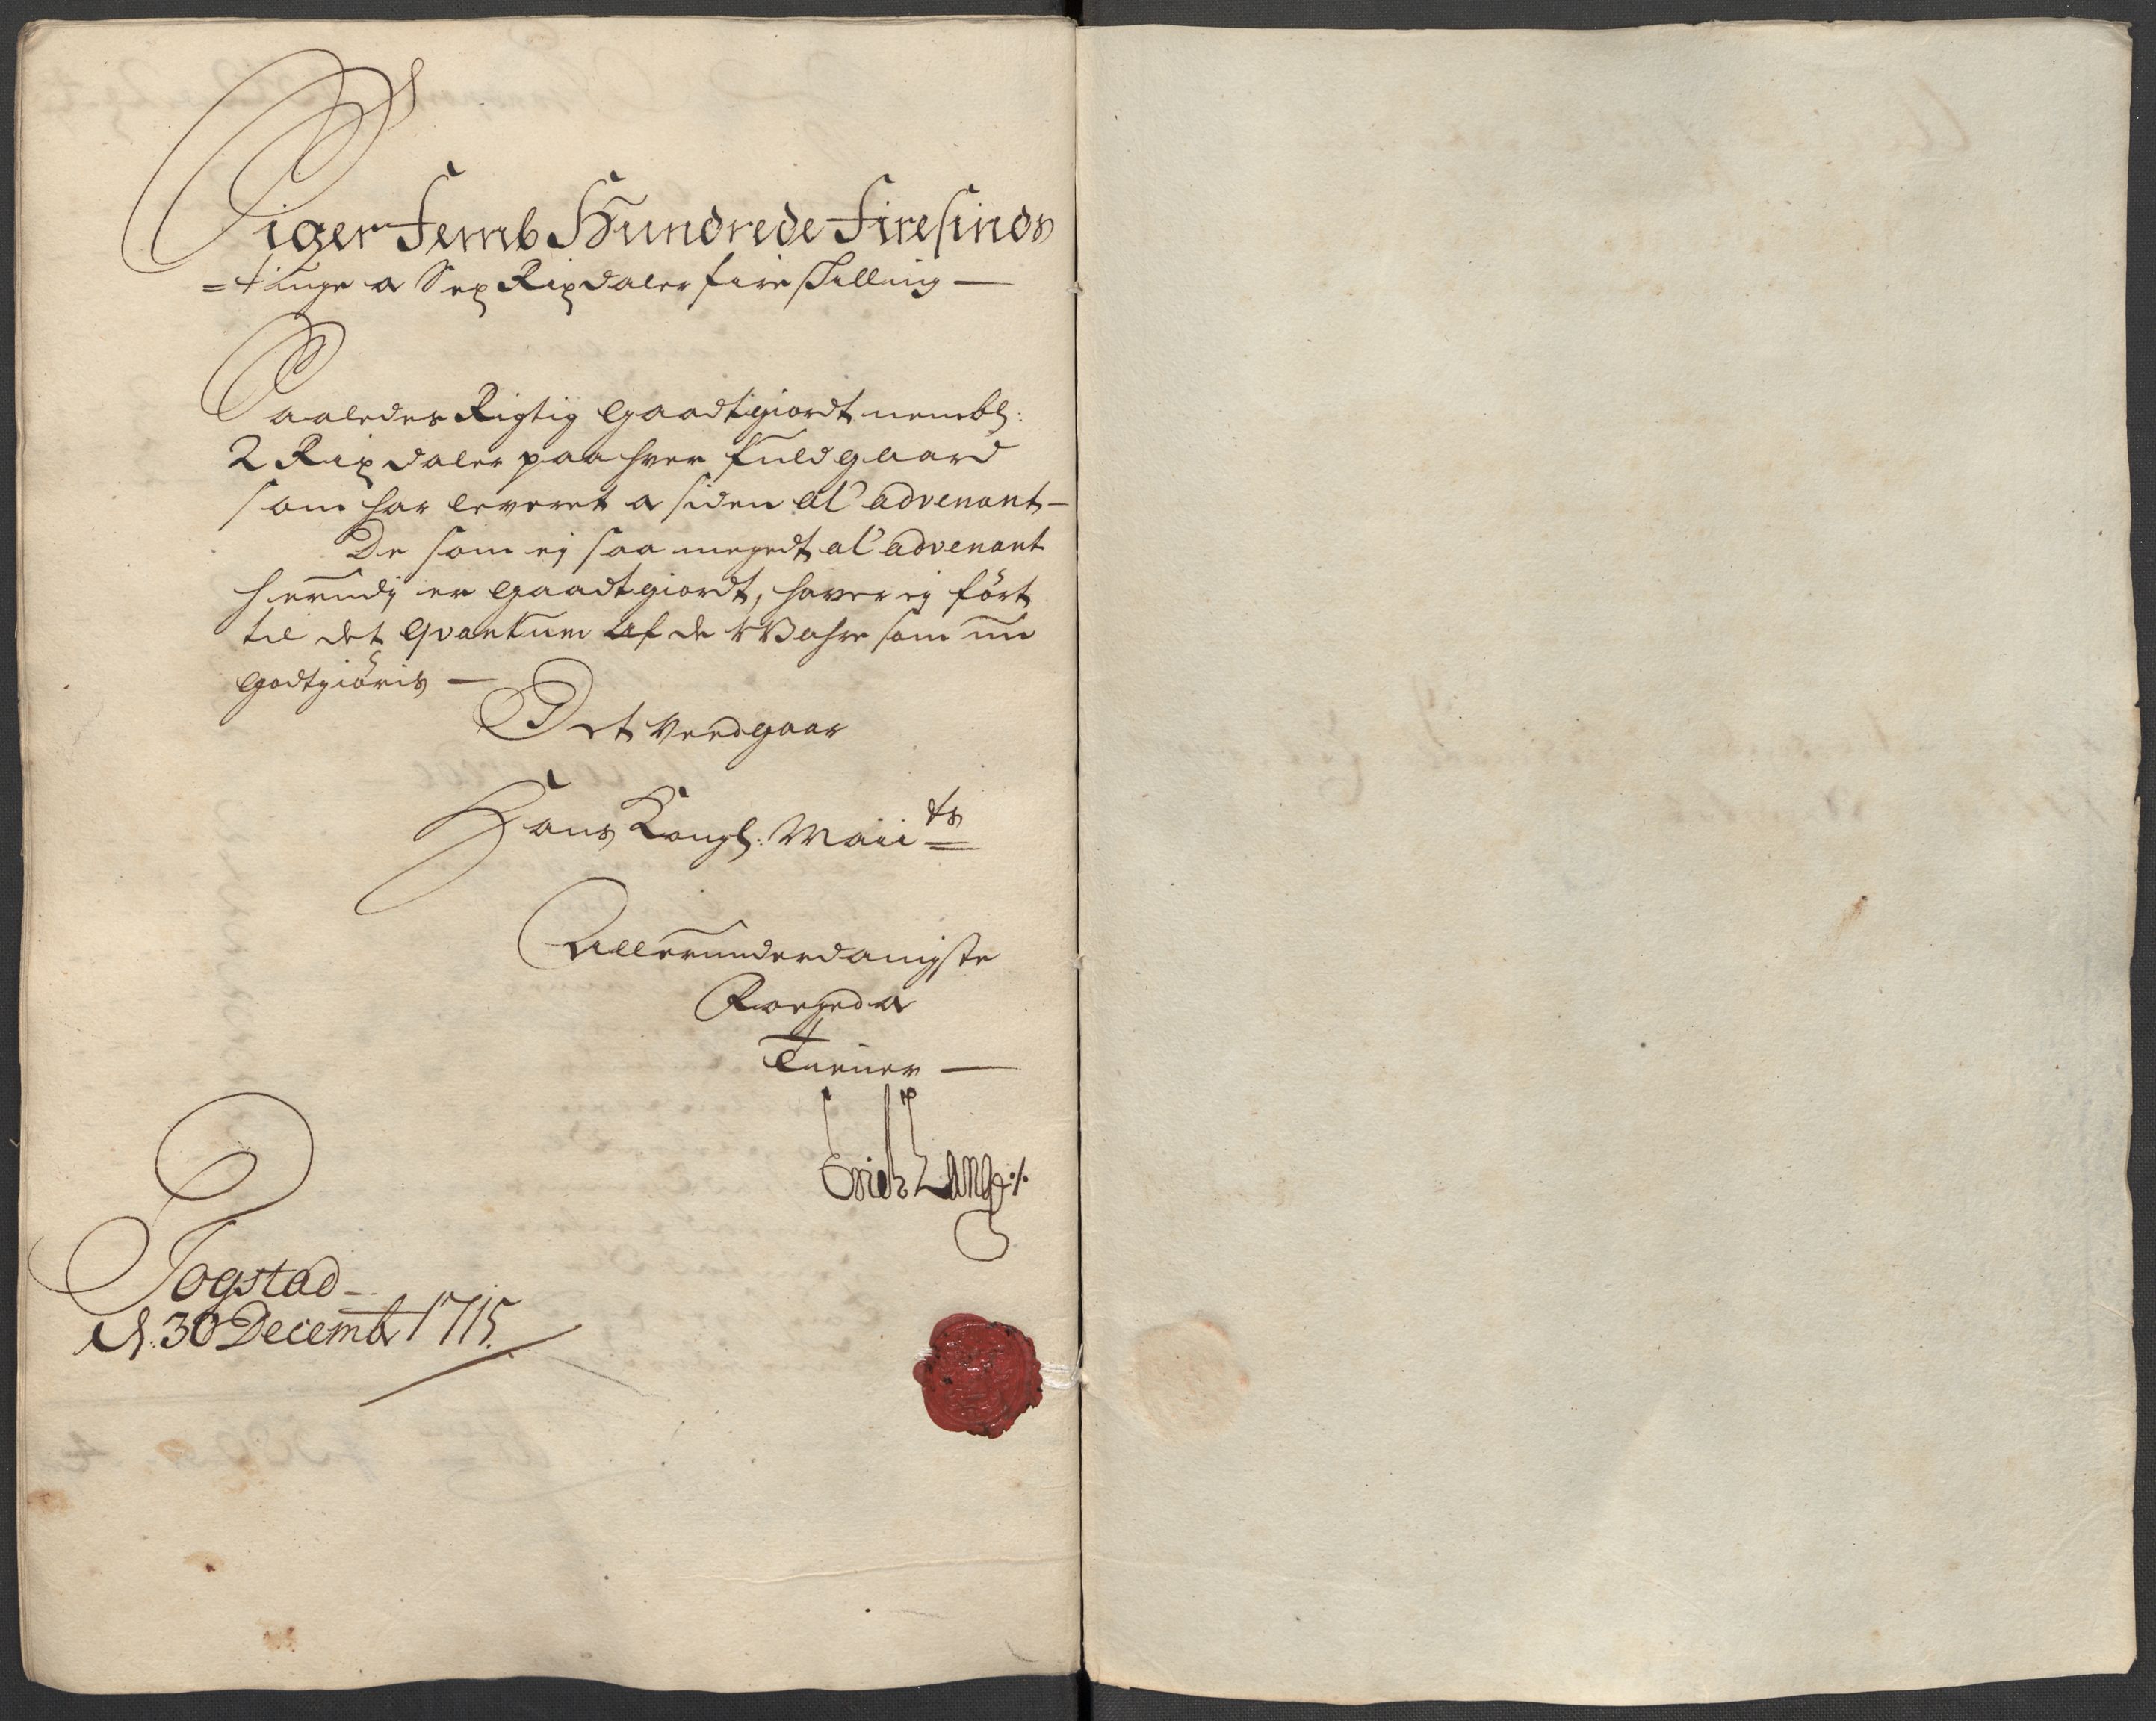 Siger Femb Hundrede Firesinds
=tiuge a Sex Rixdaler fire skilling —
Saaledes Rigtig Gaadtgiordt nembl:
2 Rixdaler paa hver fuld gaard
som har leveret a siden al' advenant —
De som ej saa megedt al' advenant
herudj er gaadtgiordt, haver ej fört
til det qvantum af de Wahre som nu
godtgiöris —
Det Vedgaar
Hans Kongl: Maiits
Allerunderdanigste
Tiener —
Erich Lange ./.
Togstad —
d. 30 Decembr 1715.